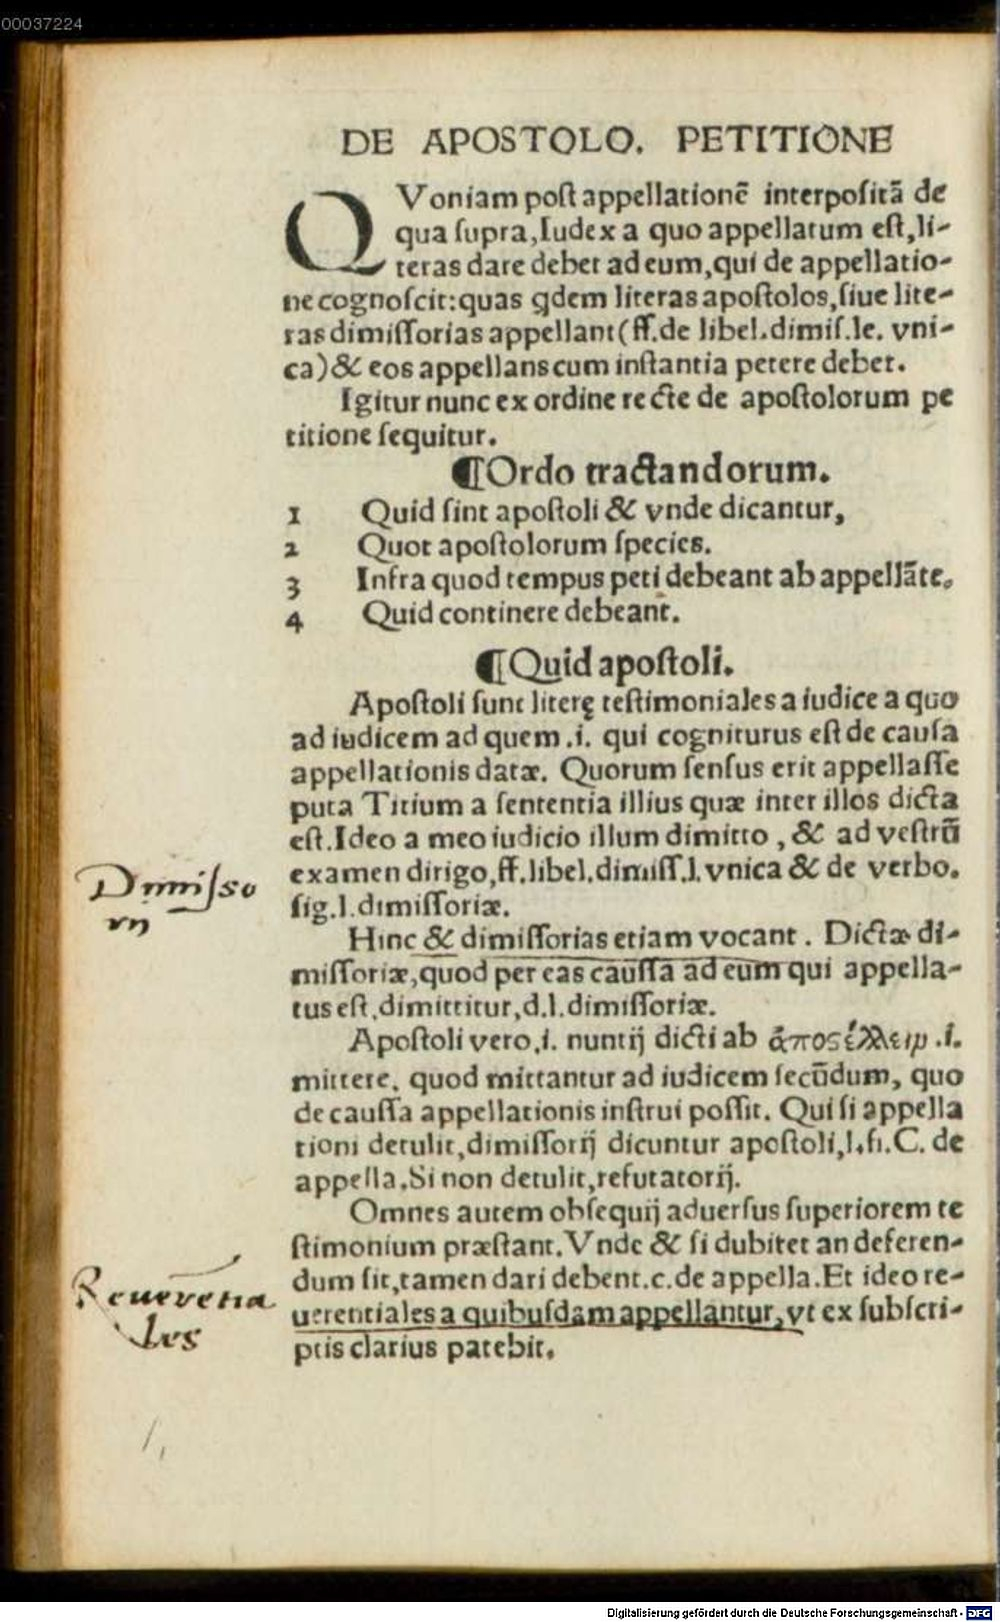 00037224
DE APOSTOLO. PETITIONE
QVoniam post appellationē interpositā de
qua supra, Iudex a quo appellatum est, li-
teras dare debet ad eum, qui de appellatio-
ne cognoscit: quas qdem literas apostolos, siue lite-
ras dimissorias appellant (ff. de libel. dimis. le. vni-
ca) & eos appellans cum instantia petere debet.
Igitur nunc ex ordine recte de apostolorum pe
titione sequitur.
¶ Ordo tractandorum.
1 Quid sint apostoli & vnde dicantur,
2 Quot apostolorum species.
3 Infra quod tempus peti debeant ab appellāte.
4 Quid continere debeant.
¶ Quid apostoli.
Apostoli sunt literę testimoniales a iudice a quo
ad iudicem ad quem .i. qui cogniturus est de causa
appellationis datæ. Quorum sensus erit appellasse
puta Titium a sententia illius quæ inter illos dicta
est. Ideo a meo iudicio illum dimitto, & ad vestrū
examen dirigo, ff. libel. dimiss. l. vnica & de verbo.
sig. l. dimissoriæ.
Dimisso
rij
Hinc & dimissorias etiam vocant. Dictæ di-
missoriæ, quod per eas caussa ad eum qui appella-
tus est, dimittitur, d. l. dimissoriæ.
Apostoli vero .i. nuntij dicti ab ἀποςέλλειν .i.
mittere, quod mittantur ad iudicem secūdum, quo
de caussa appellationis instrui possit. Qui si appella
tioni detulit, dimissorij dicuntur apostoli, l. fi. C. de
appella. Si non detulit, refutatorij.
Omnes autem obsequij aduersus superiorem te
stimonium præstant. Vnde & si dubitet an deferen-
dum sit, tamen dari debent. c. de appella. Et ideo re-
uerentiales a quibusdam appellantur, vt ex subscri-
ptis clarius patebit.
Reuerētia
les
Digitalisierung gefördert durch die Deutsche Forschungsgemeinschaft - DFG